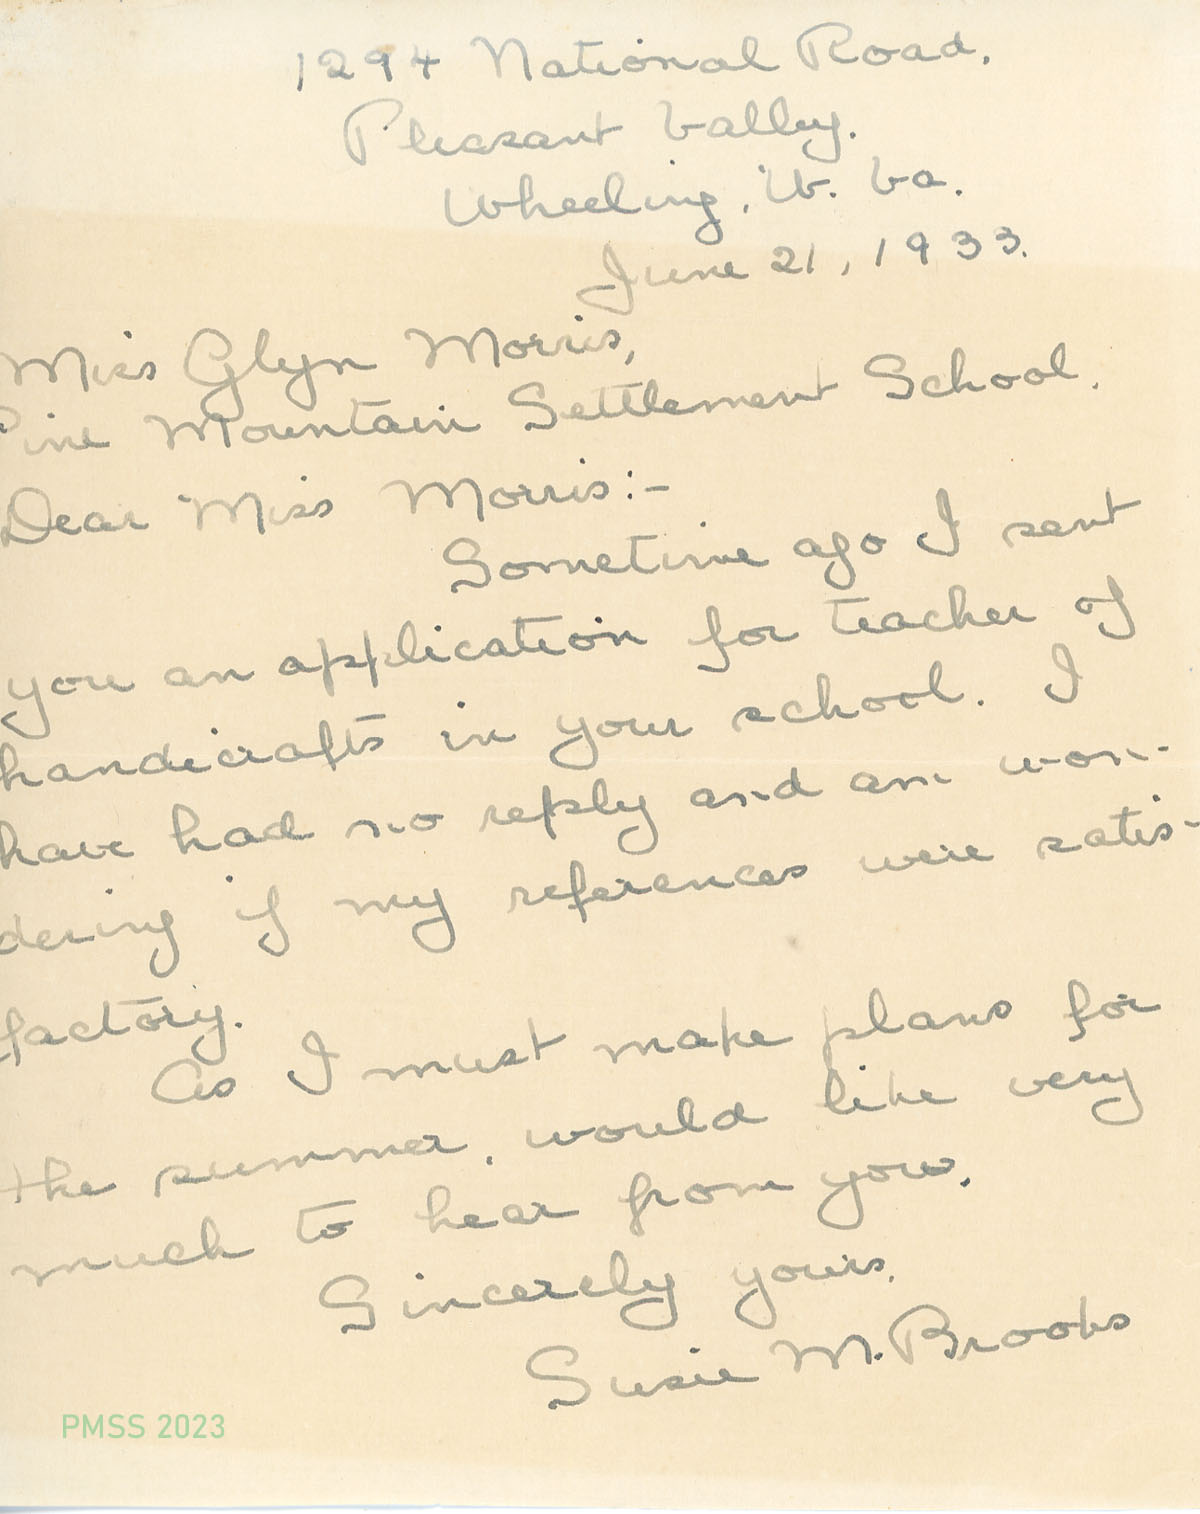 1294 National Road.
Pleasant Valley.
Wheeling, W. Va.
June 21, 1933.
Miss Glyn Morris,
Pine Mountain Settlement School.
Dear Miss Morris:-
Sometime ago I sent
you an application for teacher of
handicrafts in your school. I
have had no reply and am won-
dering if my references were satis-
factory.
As I must make plans for
the summer, would like very
much to hear from you.
Sincerely yours,
Susie M. Brooks
PMSS 2023